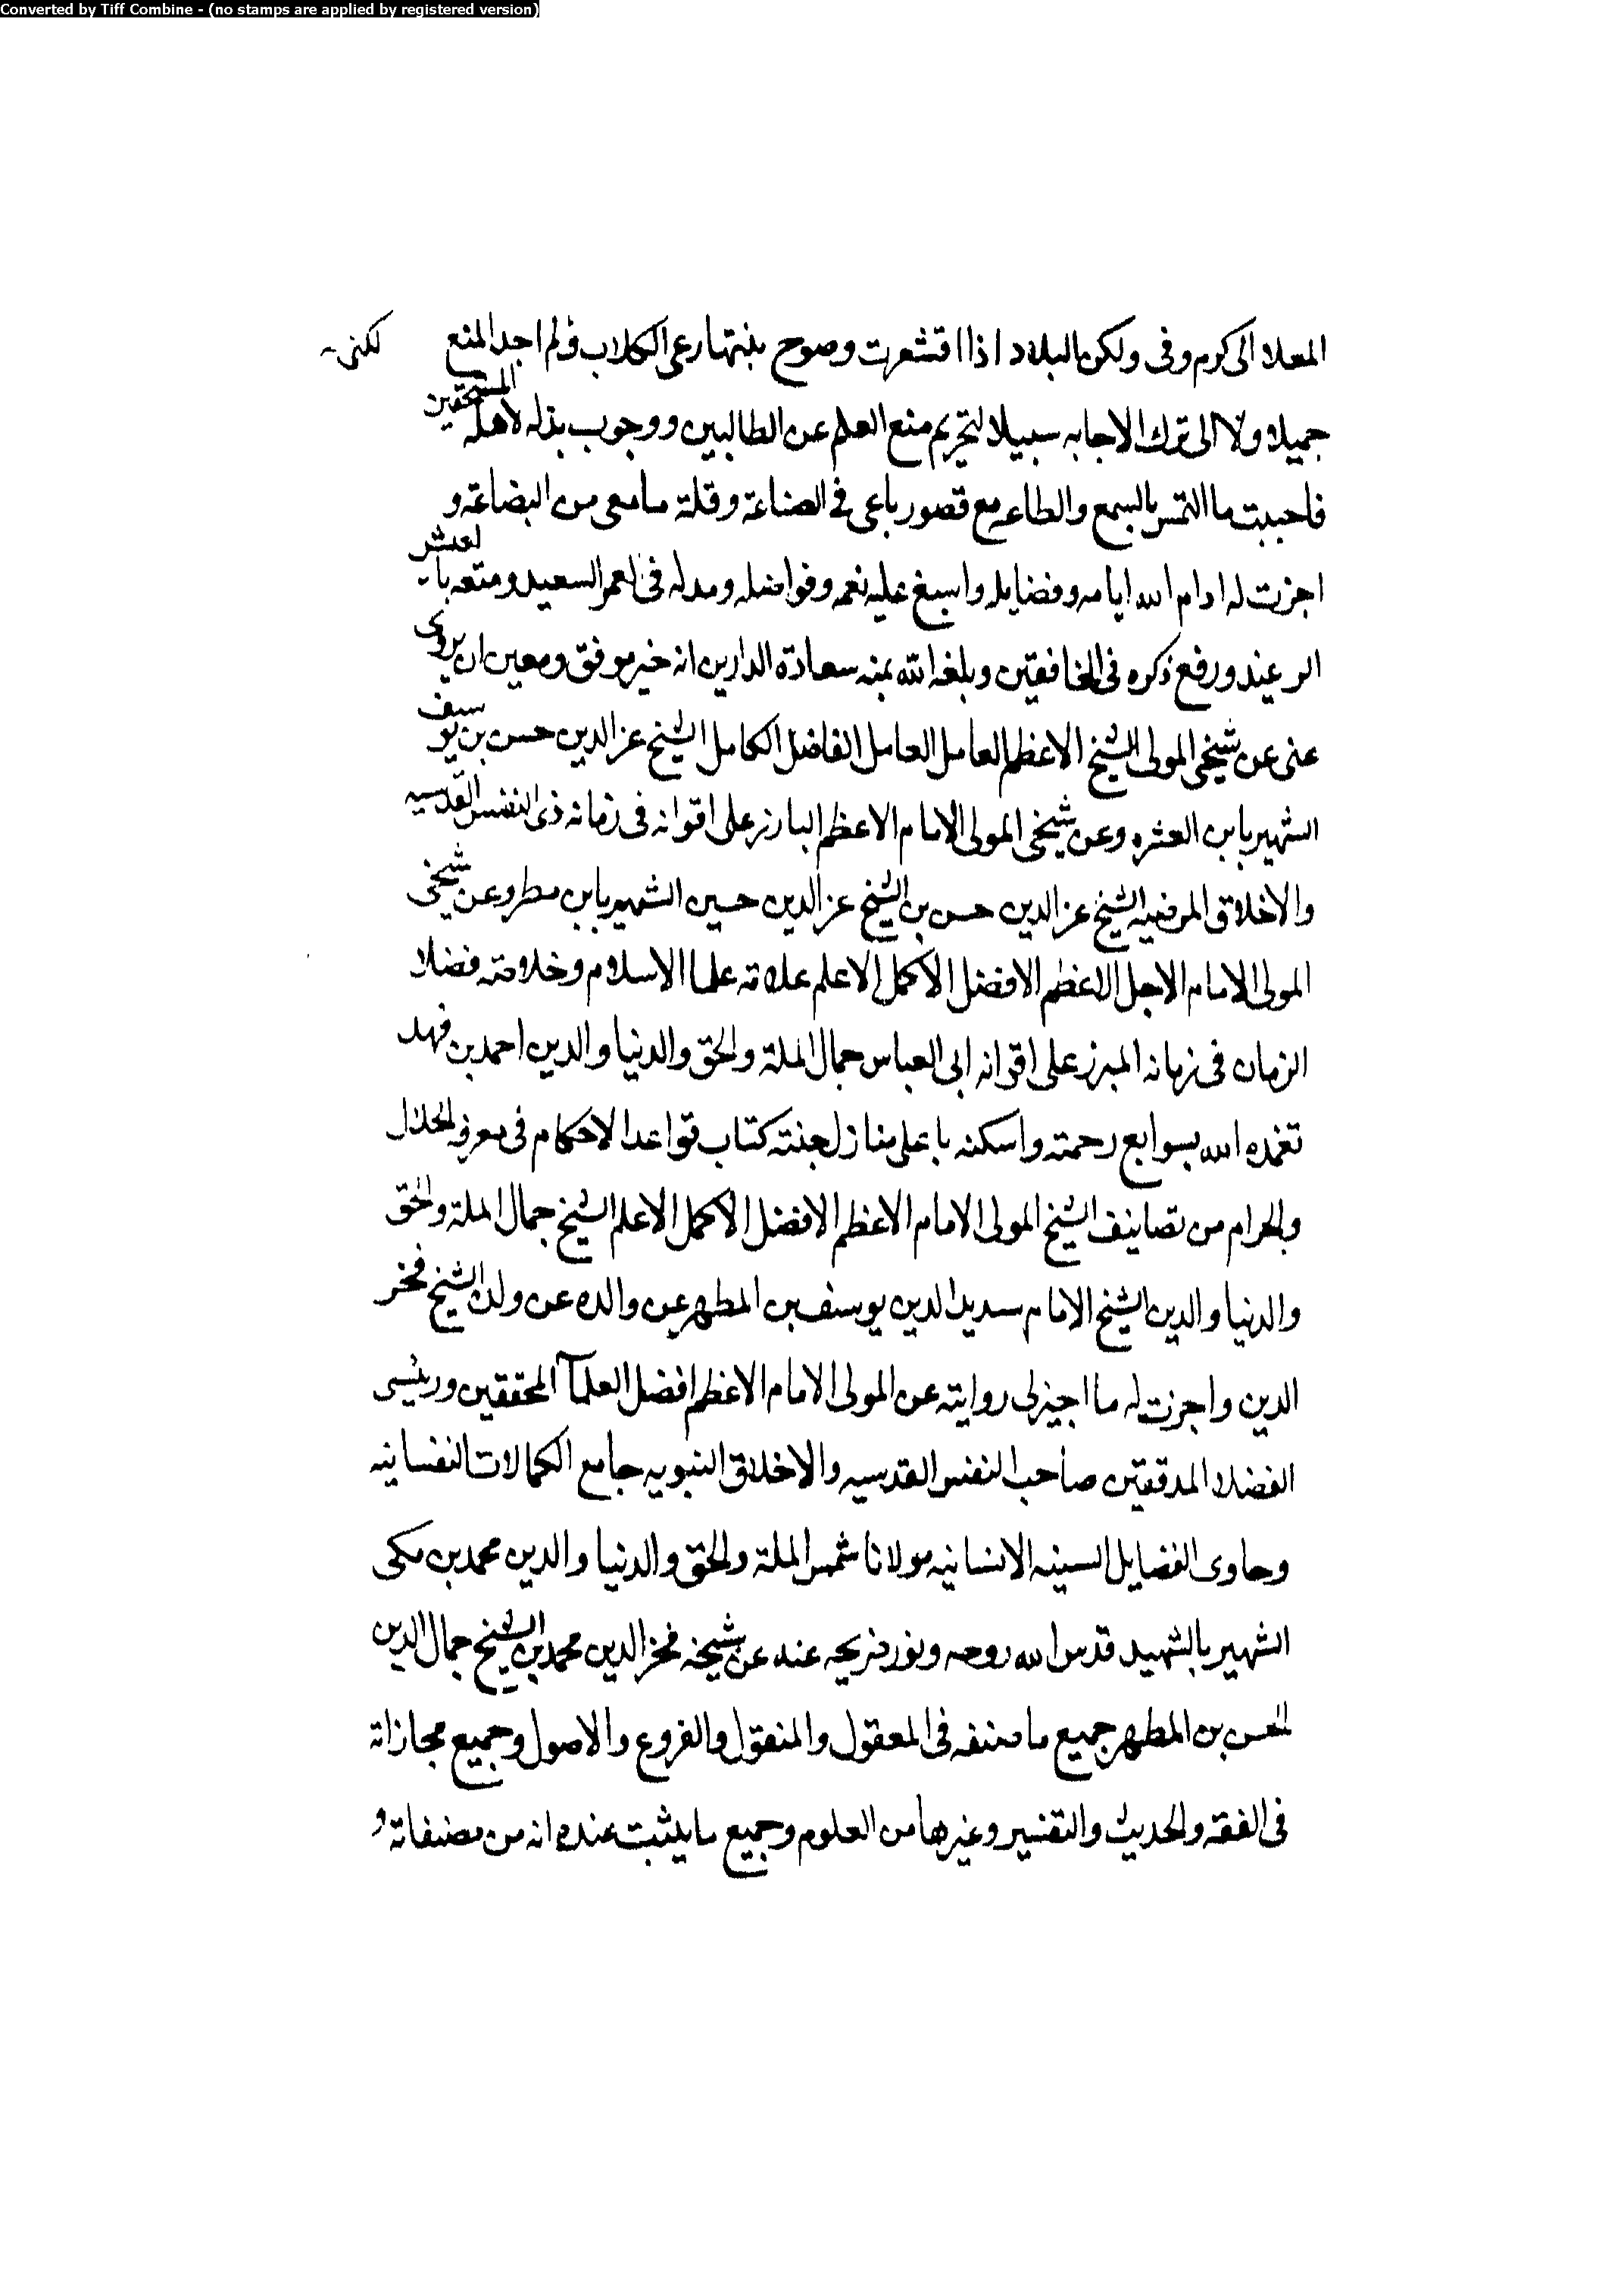 Converted by Tiff Combine - (no stamps are applied by registered version)
المعلا الى كرم وفى ولكن البلاد اذا اقشعرت وصوح بنتها رعى الكلاب ولم اجد المنع لكنى
جميلا ولا الى ترك الاجابه سبيلا لتحريم منع العلم عن الطالبين ووجوب بذله لاهله المستحقين
فاحببت ما التمس بالسمع والطاعه مع قصور باعى فى الصناعة وقلة ما معى من البضاعة و
اجزت له ادام الله ايامه وفضايله واسبغ عليه نعمه وفواضله ومد له فى العمر السعيد ومتعه بالعيش
الرغيد ورفع ذكره فى الخافقين وبلغه الله بمنه سعادة الدارين انه خير موفق ومعين ان يروى
عنى عن شيخى المولى الشيخ الاعظم العامل العامل الفاضل الكامل الشيخ عز الدين حسن بن يوسف
الشهير بابن العشره وعن شيخى المولى الامام الاعظم البارز على اقرانه فى زمانه ذى النفس القدسيه
والاخلاق المرضيه الشيخ عز الدين حسن بن الشيخ عز الدين حسين الشهير بابن مطر وعن شيخى
المولى الامام الاجل الاعظم الافضل الاكمل الاعلم علامة علما الاسلام وخلاصة فضلا
الزمان فى زمانه المبرز على اقرانه ابى العباس جمال الملة والحق والدنيا والدين احمد بن فهد
تغمده الله بسوابع رحمته واسكنه باعلى منازل جنته كتاب قواعد الاحكام فى معرفه الحلال
والحرام من تصانيف الشيخ المولى الامام الاعظم الافضل الاكمل الاعلم الشيخ جمال الملة والحق
والدنيا والدين الشيخ الامام سديد الدين يوسف بن المطهر عن والده عن ولده الشيخ فخر
الدين واجزت له ما اجيز لى روايته عن المولى الامام الاعظم افضل العلمآ المحققين ورئيس
الفضلا المدققين صاحب النفس القدسيه والاخلاق النبويه جامع الكمالات النفسانيه
وحاوى الفضايل السنيه الانسانيه مولانا شمس الملة والحق والدنيا والدين محمد بن مكى
الشهير بالشهيد قدس الله روحه ونور ضريحه عنه عن شيخه فخر الدين محمد بن الشيخ جمال الدين
الحسن بن المطهر جميع ما صنفه فى المعقول والمنقول والفروع والاصول وجميع مجازاته
فى الفقه والحديث والتفسير وغيرها من العلوم وجميع ما يثبت عنده انه من مصنفاته و